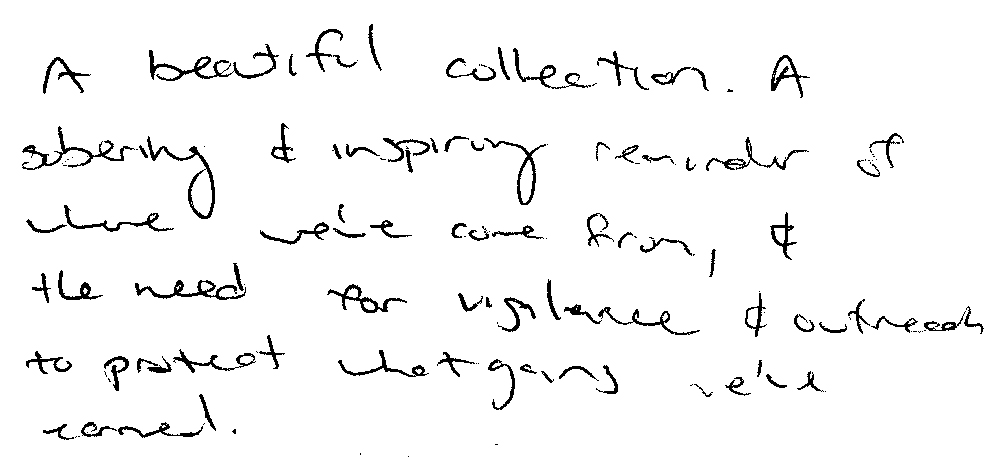 A beautiful collection. A
sobering & inspiring reminder of
where we've come from, &
the need for vigilance & outreach
to protect what gains we've
earned.